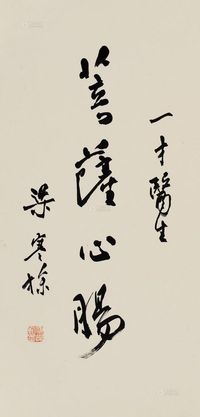 一才醫生
菩薩心腸
梁寒操